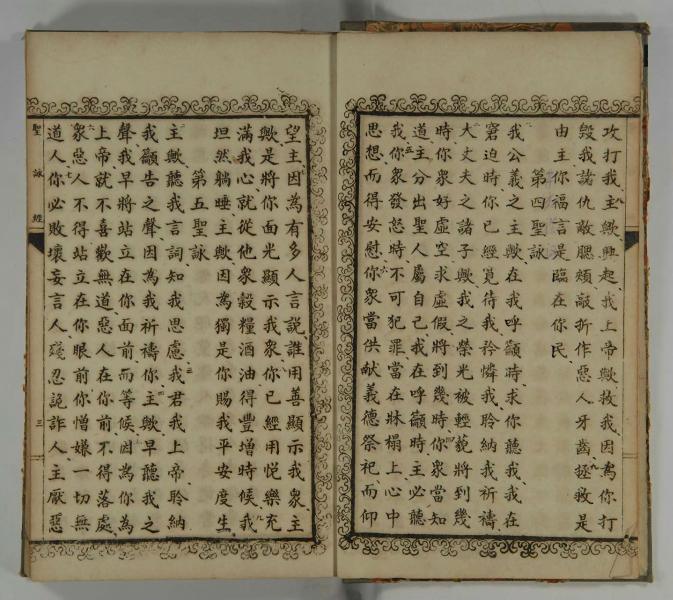 攻打我主歟興起我上帝歟救我因為你打
毁我諸仇敵腮頰敲折作惡人牙齒拯救是
由主你福言是臨在你民
第四聖詠
我公義之主歟在我呼籲時求你聽我我在
窘迫時你已經寬待我矜憐我聆納我祈禱
大丈夫之諸子歟我之榮光被輕藐將到幾
時你衆好虛空求虛假將到幾時你衆當知
道主分出聖人屬自己我在呼籲時主必聽
我你衆發怒時不可犯罪當在牀榻上心中
思想而得安慰你衆當供献義德祭祀而仰
望主因為有多人言說誰用善顯示我衆主
歟是將你面光顯示我衆你已經用悅樂充
滿我心就從他衆穀糧酒油得豐增時候我
坦然躺睡主歟因為獨是你賜我平安度生
第五聖詠
主歟聽我言詞知我思慮我君我上帝聆納
我籲告之聲因為我祈禱你主歟早聽我之
聲我早將站立在你面前而等候因為你為
上帝就不喜歡無道惡人在你前不得落處
衆惡人不得站立在你眼前你憎嫌一切無
道人你必敗壞妄言人殘忍詭詐人主厭惡
聖詠經
三